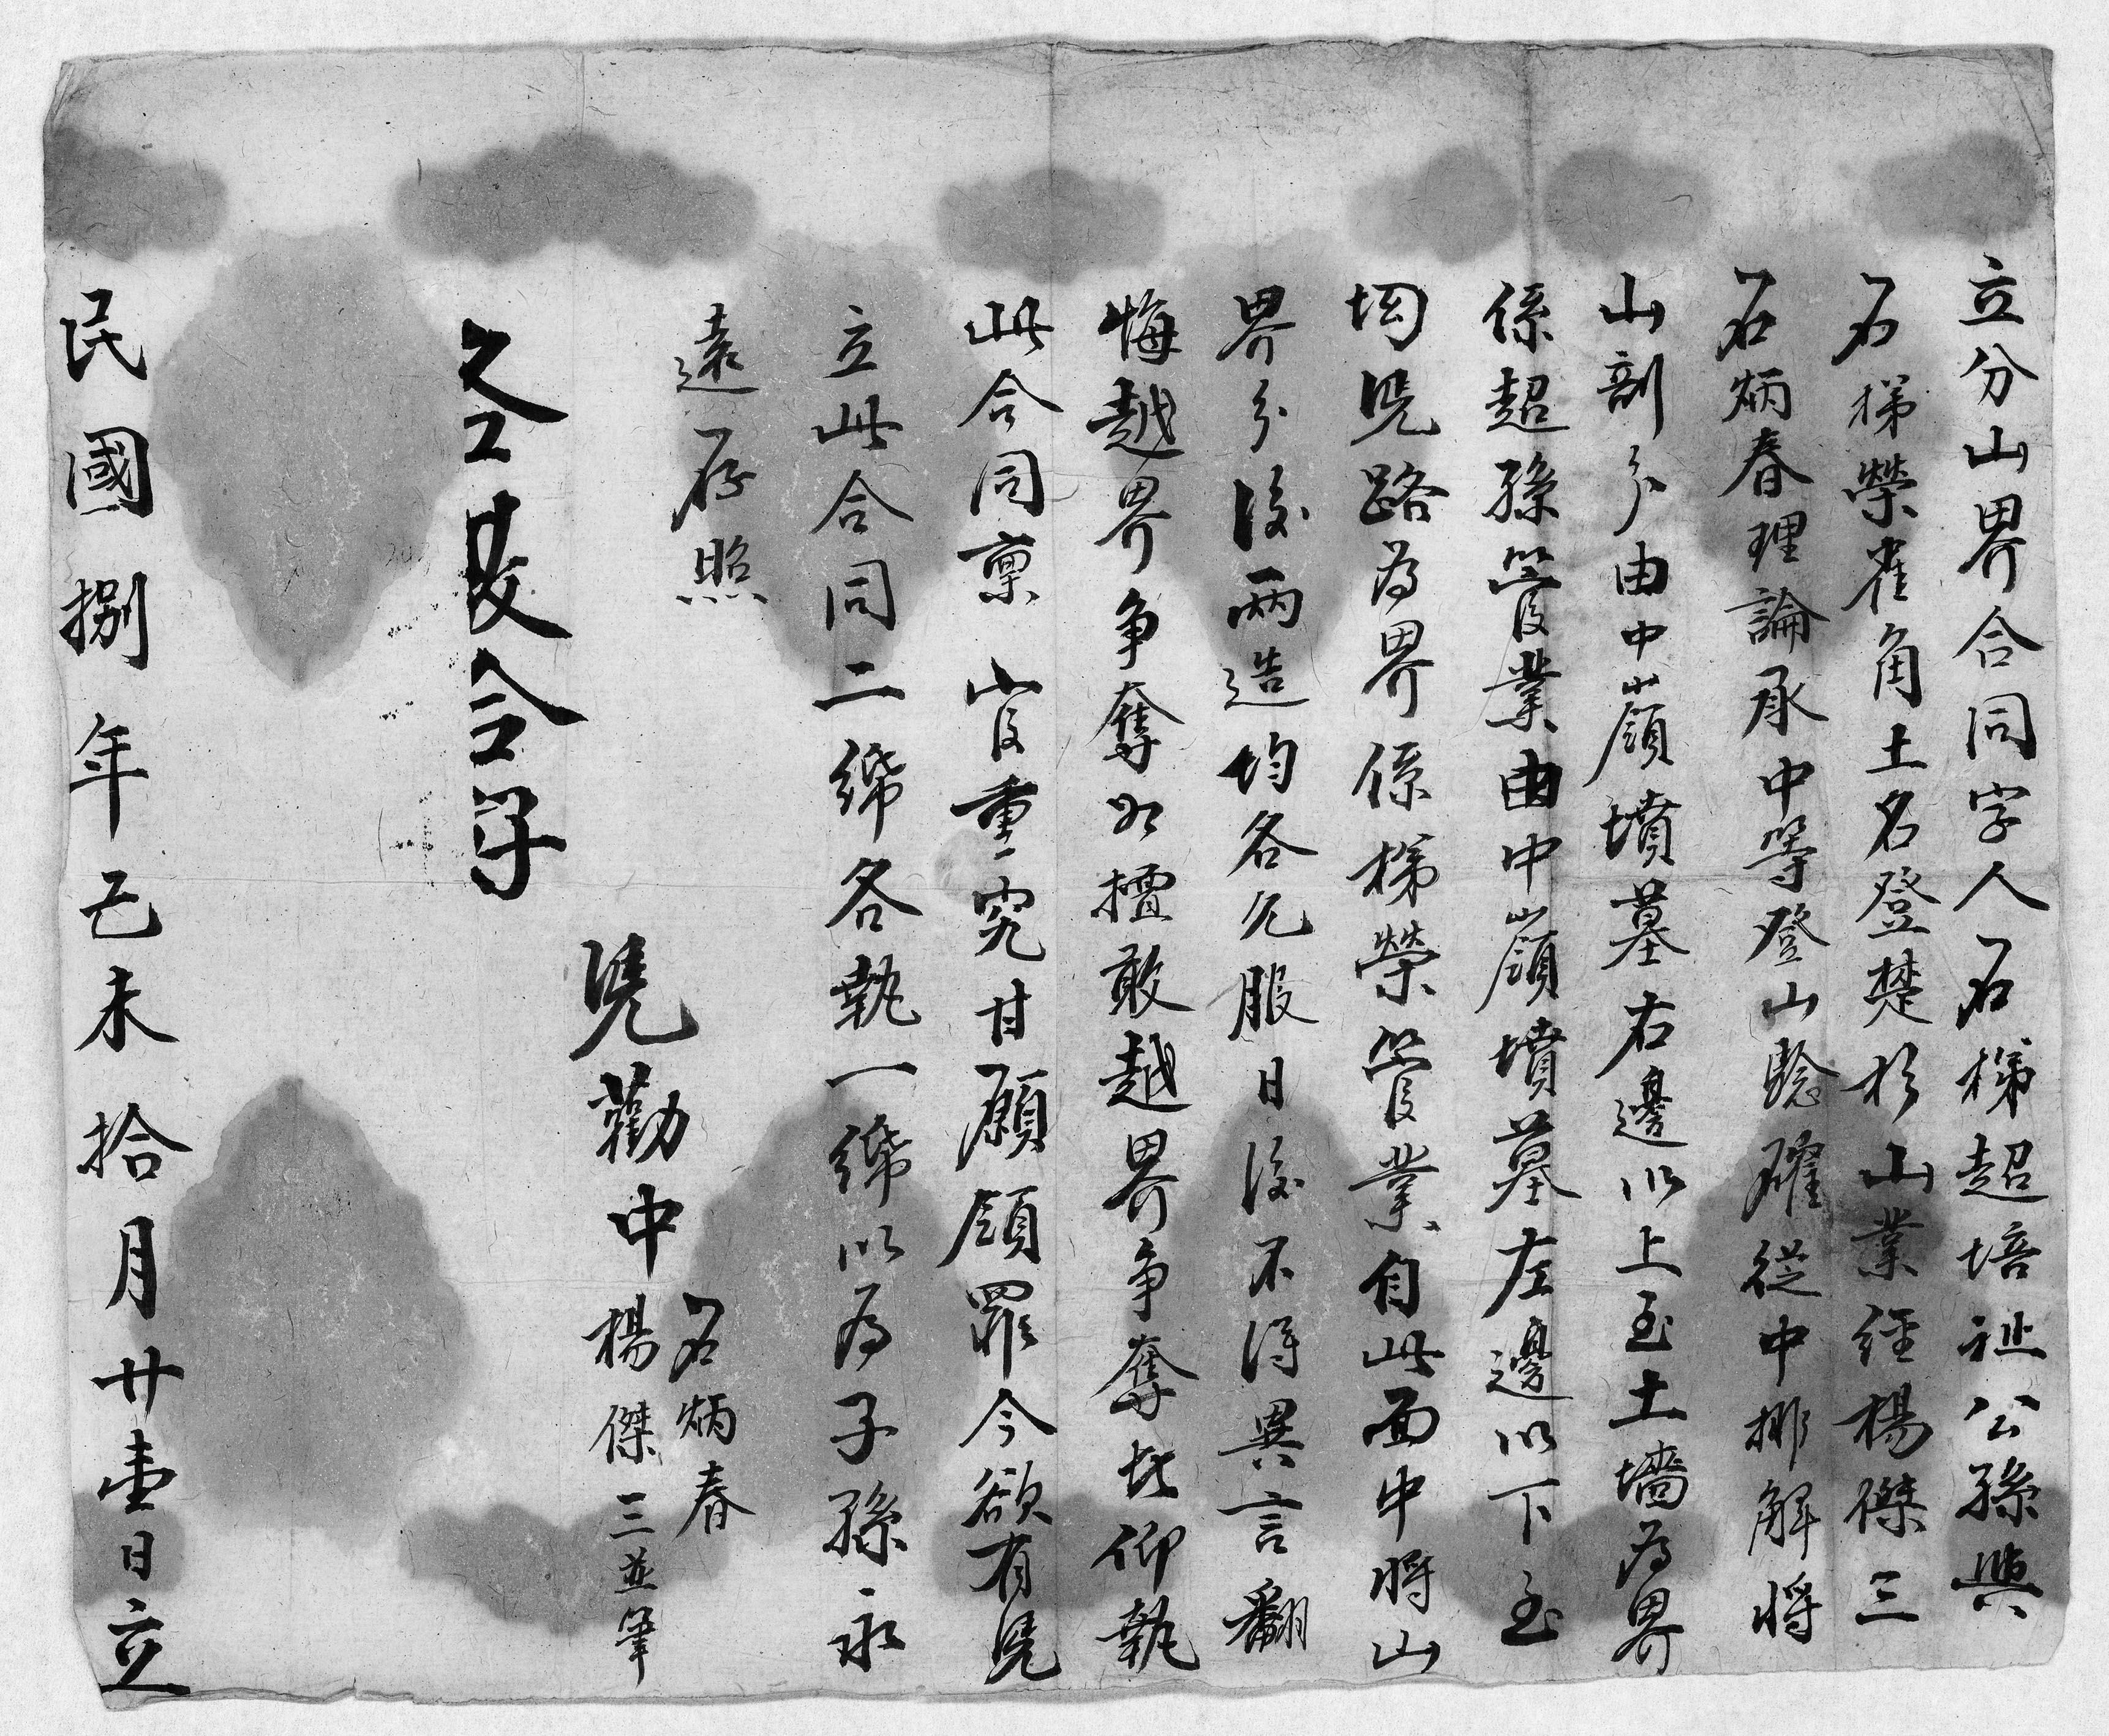 立分山界合同字人石梯超培祉公孫與
石梯榮雀角土名登楚杉山業經楊傑三
石炳春理論承中等登山騐確從中排解將
山剖分由中嶺墳墓右邊以上至土墻為界
係超孫管業由中嶺墳墓左邊以下至
坳凴路為界係梯榮管業自此面中將山
界分後兩造均各允服日後不得異言翻
悔越界争奪如擅敢越界争奪者仰執
此合同禀官重究甘願領罪今欲有凴
立此合同二紙各執一紙以為子孫永
遠存照
凴勸中 石炳春 楊傑三並筆
民國捌年己未拾月廿壹日立